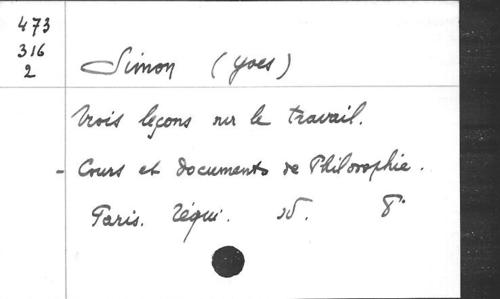 473
316
2
Simon (Yves)
Trois leçons sur le travail.
- Cours et documents de Philosophie.
Paris. Téqui. sd. 8°